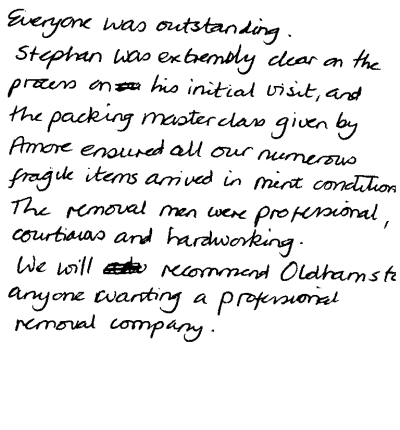 Everyone was outstanding.
Stephan was extremely clear on the
process on his initial visit, and
the packing masterclass given by
Amore ensured all our numerous
fragile items arrived in mint condition
The removal men were professional,
courtious and hardworking.
We will recommend Oldhams to
anyone wanting a professional
removal company.